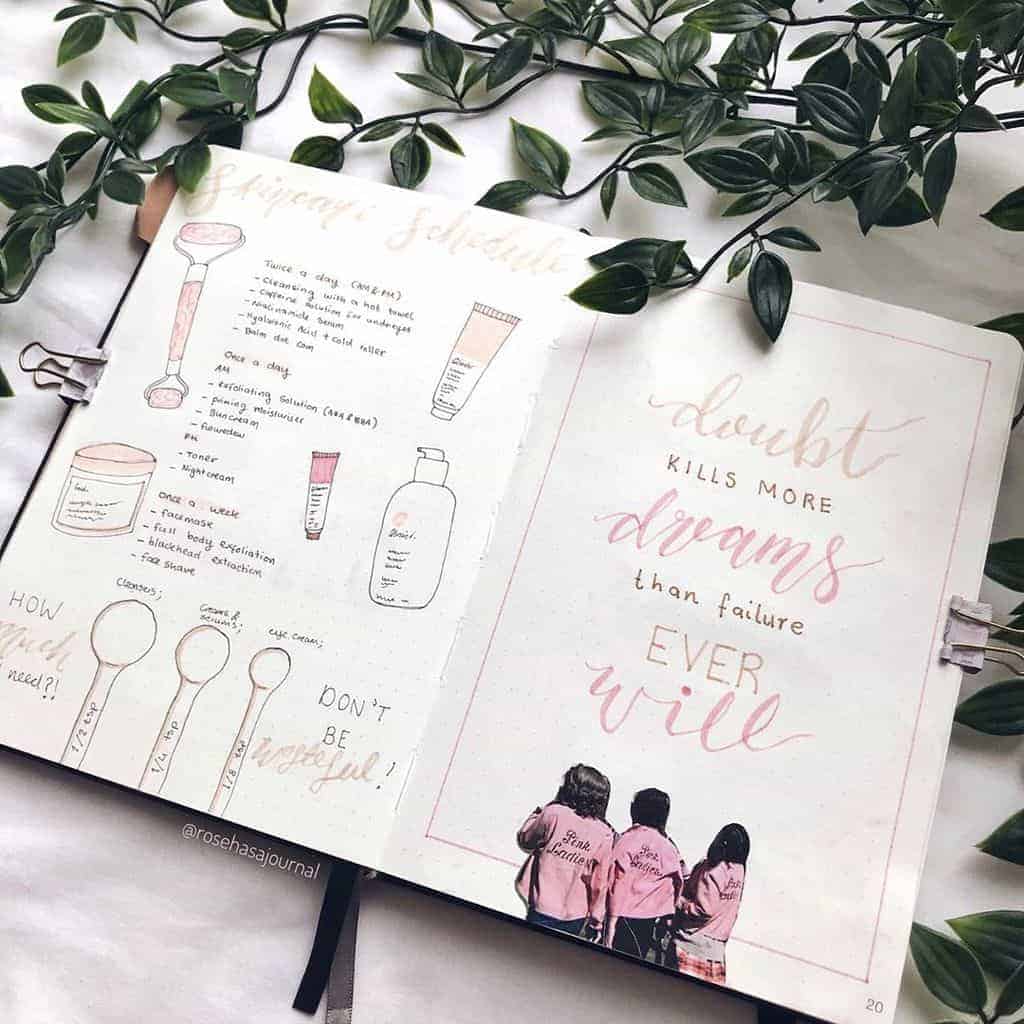 Skincare Schedule
Twice a day (AM & PM)
- Cleansing with a hot towel
- Caffeine solution for undereyes
- Niacinamide serum
- Hyaluronic Acid + cold roller
- Balm dot com
Once a day
AM
- exfoliating solution (AHA & BHA)
- priming moisturiser
- Suncream
- futuredew
PM
- Toner
- Nightcream
Once a week
- facemask
- full body exfoliation
- blackhead extraction
- face shave
Cleansers;
Creams & serums;
eye cream;
HOW
Much
I need?!
1/2 tsp
1/4 tsp
1/8 tsp
DON'T
BE
wasteful!
@rosehasajournal
doubt
KILLS MORE
dreams
than failure
EVER
will
Pink
Ladies
Pink
Ladies
Pink
Ladies
20